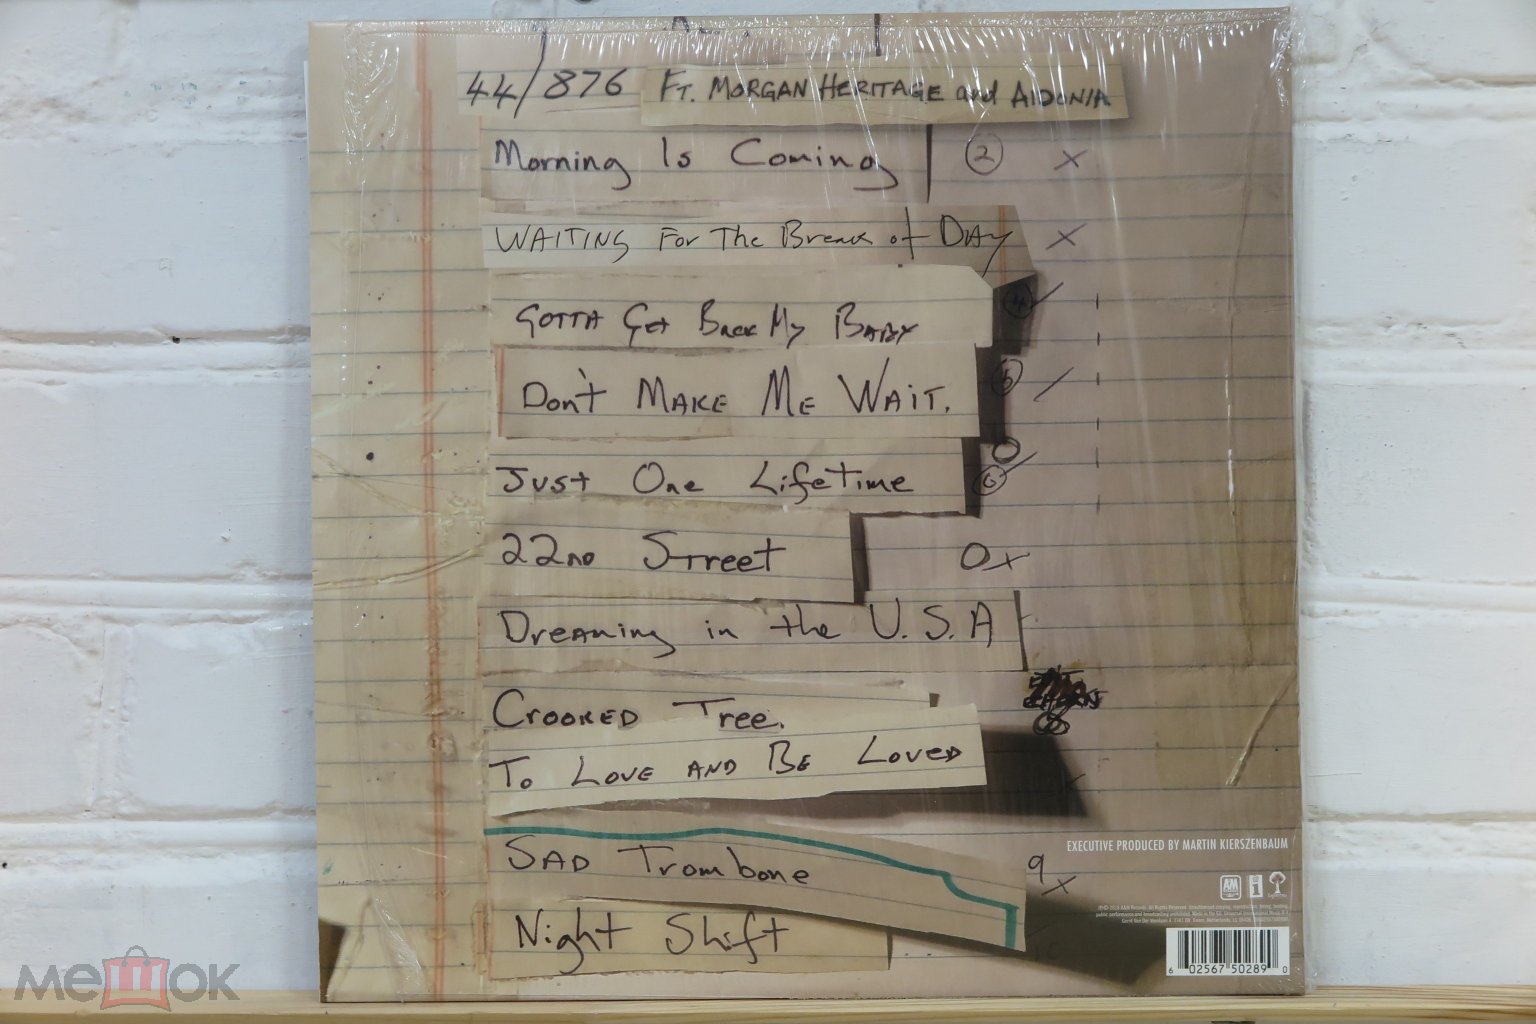 44/876 FT. MORGAN HERITAGE and AIDONIA
Morning Is Coming 2 x
WAITING For The Break of DAY x
GOTTA Get Back My BABY 4
Don't MAKE ME WAIT. 5
Just One Lifetime 6
22ND Street 0x
Dreaming in the U.S.A
CROOKED Tree.
To LOVE AND BE LOVED
SAD Trombone 9 x
Night Shift
EXECUTIVE PRODUCED BY MARTIN KIERSZENBAUM
A&M
i
6 02567 50289 0
мешок